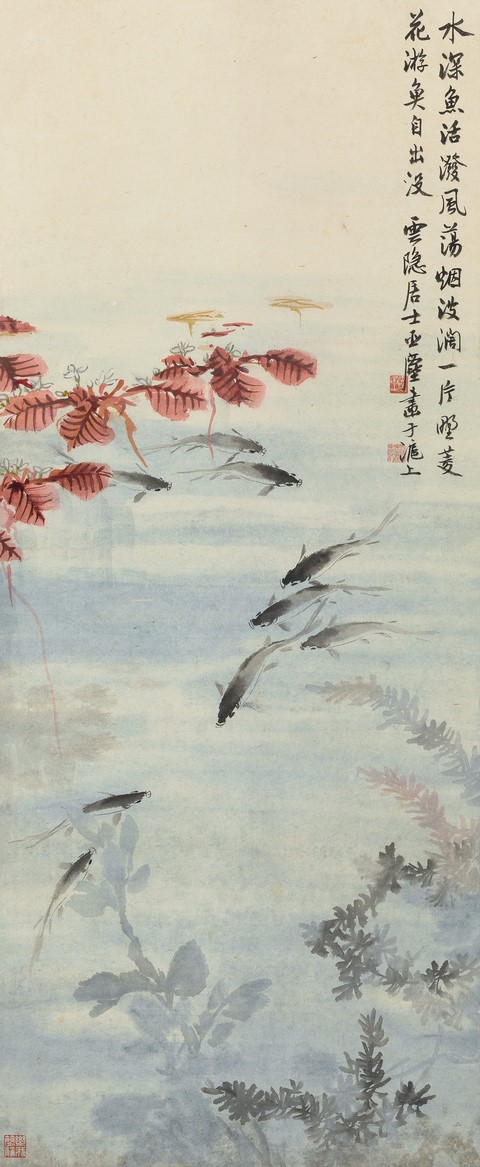 水深魚活潑風蕩烟波濶一片野菱
花游魚自出沒 雲隐居士亚塵畫于滬上